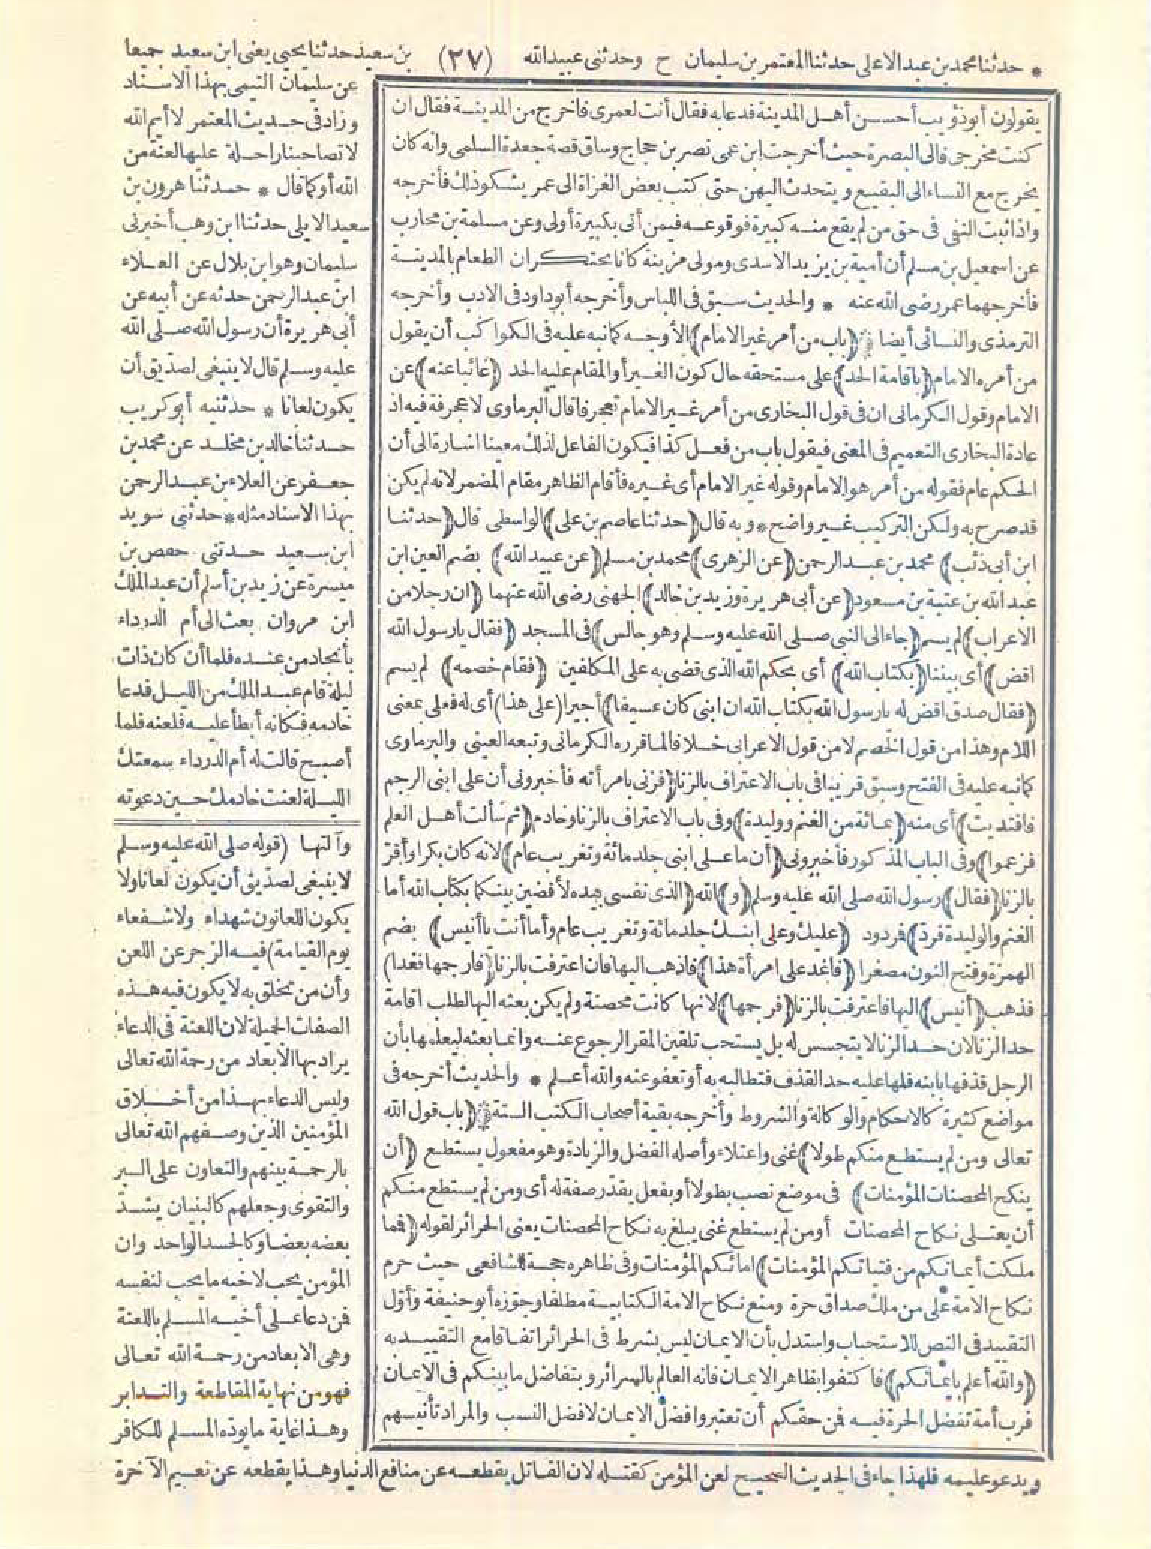 * حدثنا محمد بن عبد الاعلى حدثنا المعتمر بن سليمان ح وحدثنى عبيد الله (٢٧) بن سعيد حدثنا يحيى يعنى ابن سعيد جميعا
عن سليمان التيمى بهذا الاسناد
وزاد فى حديث المعتمر لا أيم الله
لا تصاحبنا راحلة عليها لعنة من
الله أو كما قال * حدثنا هرون بن
سعيد الايلى حدثنا ابن وهب أخبرنى
سليمان وهو ابن بلال عن العلاء
ابن عبد الرحمن حدثه عن أبيه عن
أبى هريرة أن رسول الله صلى الله
عليه وسلم قال لا ينبغى لصديق أن
يكون لعانا * حدثنيه أبو كريب
حدثنا خالد بن مخلد عن محمد بن
جعفر عن العلاء بن عبد الرحمن
بهذا الاسناد مثله * حدثنى سويد
ابن سعيد حدثنى حفص بن
ميسرة عن زيد بن أسلم أن عبد الملك
ابن مروان بعث الى أم الدرداء
بأنجاد من عنده فلما أن كان ذات
ليلة قام عبد الملك من الليل فدعا
خادمه فكأنه أبطأ عليه فلعنه فلما
أصبح قالت له أم الدرداء سمعتك
الليلة لعنت خادمك حين دعوته
يقولون أبو ذؤيب أحسن أهل المدينة فدعا به فقال أنت لعمرى فاخرج من المدينة فقال ان
كنت مخرجى فالى البصرة حيث أخرجت ابن عمى نصر بن حجاج وساق قصة جعدة السلمى وانه كان
يخرج مع النساء الى البقيع ويتحدث اليهن حتى كتب بعض الغزاة الى عمر يشكو ذلك فأخرجه
واذا ثبت النفى فى حق من لم يقع منه كبيرة فوقوعه فيمن أتى بكبيرة أولى وعن مسلمة بن محارب
عن اسمعيل بن مسلم أن أمية بن يزيد الاسدى ومولى مزينة كانا يحتكران الطعام بالمدينة
فأخرجهما عمر رضى الله عنه * والحديث سبق فى اللباس وأخرجه أبو داود فى الادب وأخرجه
الترمذى والنسائى أيضا (باب من أمر غير الامام) الأوجه كما نبه عليه فى الكواكب أن يقول
من أمره الامام (باقامة الحد) على مستحقه حال كون الغير أو المقام عليه الحد (غائبا عنه) عن
الامام وقول الكرمانى ان فى قول البخارى من أمر غير الامام تعجرفا قال البرماوى لا عجرفة فيه اذ
عادة البخارى التعميم فى المعنى فيقول باب من فعل كذا فيكون الفاعل لذلك معينا اشارة الى أن
الحكم عام فقوله من أمر هو الامام وقوله غير الامام أى غيره فأقام الظاهر مقام المضمر لانه لم يكن
قد صرح به ولكن التركيب غير واضح * وبه قال (حدثنا عاصم بن على) الواسطى قال (حدثنا
ابن أبى ذئب) محمد بن عبد الرحمن (عن الزهرى) محمد بن مسلم (عن عبيد الله) بضم العين ابن
عبد الله بن عتبة بن مسعود (عن أبى هريرة وزيد بن خالد) الجهنى رضى الله عنهما (ان رجلا من
الاعراب) لم يسم (جاء الى النبى صلى الله عليه وسلم وهو جالس) فى المسجد (فقال يا رسول الله
اقض) أى بيننا (بكتاب الله) أى بحكم الله الذى قضى به على المكلفين (فقام خصمه) لم يسم
(فقال صدق اقض له يا رسول الله بكتاب الله ان ابنى كان عسيفا) أجيرا (على هذا) أى له فعلى بمعنى
اللام وهذا من قول الخصم لا من قول الاعرابى خلافا لما قرره الكرمانى وتبعه العينى والبرماوى
كما نبه عليه فى الفتح وسبق قريبا فى باب الاعتراف بالزنا (فزنى بامرأته فأخبرونى أن على ابنى الرجم
فافتديت) أى منه (بمائة من الغنم ووليدة) وفى باب الاعتراف بالزنا وخادم (ثم سألت أهل العلم
فزعموا) وفى الباب المذكور فأخبرونى (أن ما على ابنى جلد مائة وتغريب عام) لانه كان بكرا وأقر
بالزنا (فقال) رسول الله صلى الله عليه وسلم (و) الله (الذى نفسى بيده لأقضين بينكما بكتاب الله أما
الغنم والوليدة فرد) فردود (عليك وعلى ابنك جلد مائة وتغريب عام وأما أنت يا أنيس) بضم
الهمزة وفتح النون مصغرا (فاغد على امرأة هذا) فاذهب اليها فان اعترفت بالزنا (فارجمها فغدا)
فذهب (أنيس) اليها فاعترفت بالزنا (فرجمها) لانها كانت محصنة ولم يكن بعثه اليها لطلب اقامة
حد الزنا لان حد الزنا لا يتجسس له بل يستحب تلقين المقر الرجوع عنه وانما بعثه ليعلمها بأن
الرجل قذفها بابنه فلها عليه حد القذف فتطالبه به أو تعفو عنه والله أعلم * والحديث أخرجه فى
مواضع كثيرة كالاحكام والوكالة والشروط وأخرجه بقية أصحاب الكتب الستة (باب قول الله
تعالى ومن لم يستطع منكم طولا) غنى واعتلاء وأصله الفضل والزيادة وهو مفعول يستطع (أن
ينكح المحصنات المؤمنات) فى موضع نصب بطولا أو بفعل يقدر صفة له أى ومن لم يستطع منكم
أن يعتلى نكاح المحصنات أو من لم يستطع غنى يبلغ به نكاح المحصنات يعنى الحرائر لقوله (فمما
ملكت أيمانكم من فتياتكم المؤمنات) امائكم المؤمنات وفى ظاهره حجة للشافعى حيث حرم
نكاح الامة على من ملك صداق حرة ومنع نكاح الامة الكتابية مطلقا وجوزه أبو حنيفة وأول
التقييد فى النص للاستحباب واستدل بأن الايمان ليس بشرط فى الحرائر اتفاقا مع التقييد به
(والله أعلم بايمانكم) فاكتفوا بظاهر الايمان فانه العالم بالسرائر وبتفاضل ما بينكم فى الايمان
فرب أمة تفضل الحرة فيه فمن حقكم أن تعتبروا فضل الايمان لا فضل النسب والمراد تأنيسهم
وآلتها (قوله صلى الله عليه وسلم
لا ينبغى لصديق أن يكون لعانا ولا
يكون اللعانون شهداء ولا شفعاء
يوم القيامة) فيه الزجر عن اللعن
وأن من تخلق به لا يكون فيه هذه
الصفات الجميلة لان اللعنة فى الدعاء
يراد بها الابعاد من رحمة الله تعالى
وليس الدعاء بهذا من أخلاق
المؤمنين الذين وصفهم الله تعالى
بالرحمة بينهم والتعاون على البر
والتقوى وجعلهم كالبنيان يشد
بعضه بعضا وكالجسد الواحد وان
المؤمن يحب لاخيه ما يحب لنفسه
فمن دعا على أخيه المسلم باللعنة
وهى الابعاد من رحمة الله تعالى
فهو من نهاية المقاطعة والتدابر
وهذا غاية ما يوده المسلم للكافر
ويدعو عليه فلهذا جاء فى الحديث الصحيح لعن المؤمن كقتله لان القاتل يقطعه عن منافع الدنيا وهذا يقطعه عن نعيم الآخرة